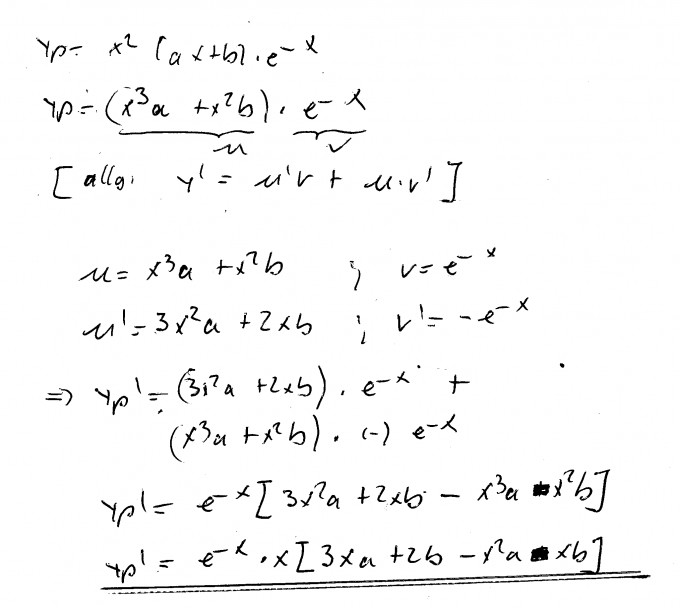 yp = x² (ax+b)·e^-x
yp = (x³a + x²b) · e^-x
u v
[allg. y' = u'v + u·v']
u = x³a + x²b ; v = e^-x
u' = 3x²a + 2xb ; v' = -e^-x
=> yp' = (3x²a + 2xb) · e^-x +
(x³a + x²b) · (-) e^-x
yp' = e^-x [3x²a + 2xb - x³a - x²b]
yp' = e^-x · x [3xa + 2b - x²a - xb]